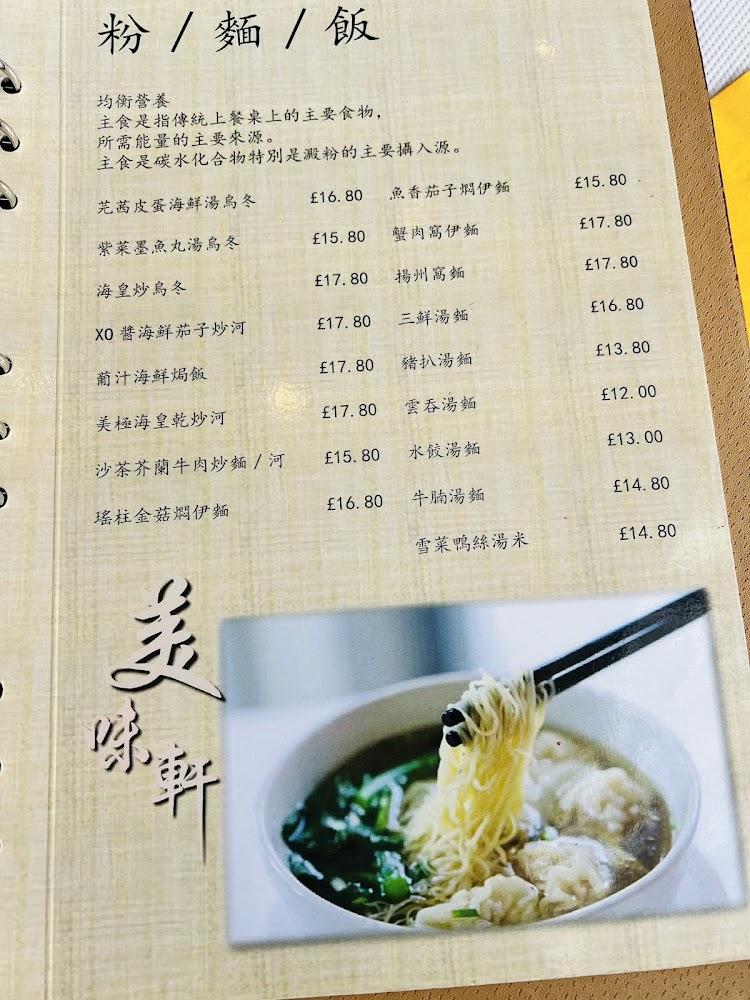 粉 / 麵 / 飯
均衡營養
主食是指傳統上餐桌上的主要食物,
所需能量的主要來源。
主食是碳水化合物特別是澱粉的主要攝入源。
芫茜皮蛋海鮮湯烏冬 £16.80
紫菜墨魚丸湯烏冬 £15.80
海皇炒烏冬 £17.80
XO 醬海鮮茄子炒河 £17.80
葡汁海鮮焗飯 £17.80
美極海皇乾炒河 £17.80
沙茶芥蘭牛肉炒麵 / 河 £15.80
瑤柱金菇燜伊麵 £16.80
魚香茄子燜伊麵 £15.80
蟹肉窩伊麵 £17.80
揚州窩麵 £17.80
三鮮湯麵 £16.80
豬扒湯麵 £13.80
雲吞湯麵 £12.00
水餃湯麵 £13.00
牛腩湯麵 £14.80
雪菜鴨絲湯米 £14.80
美味軒